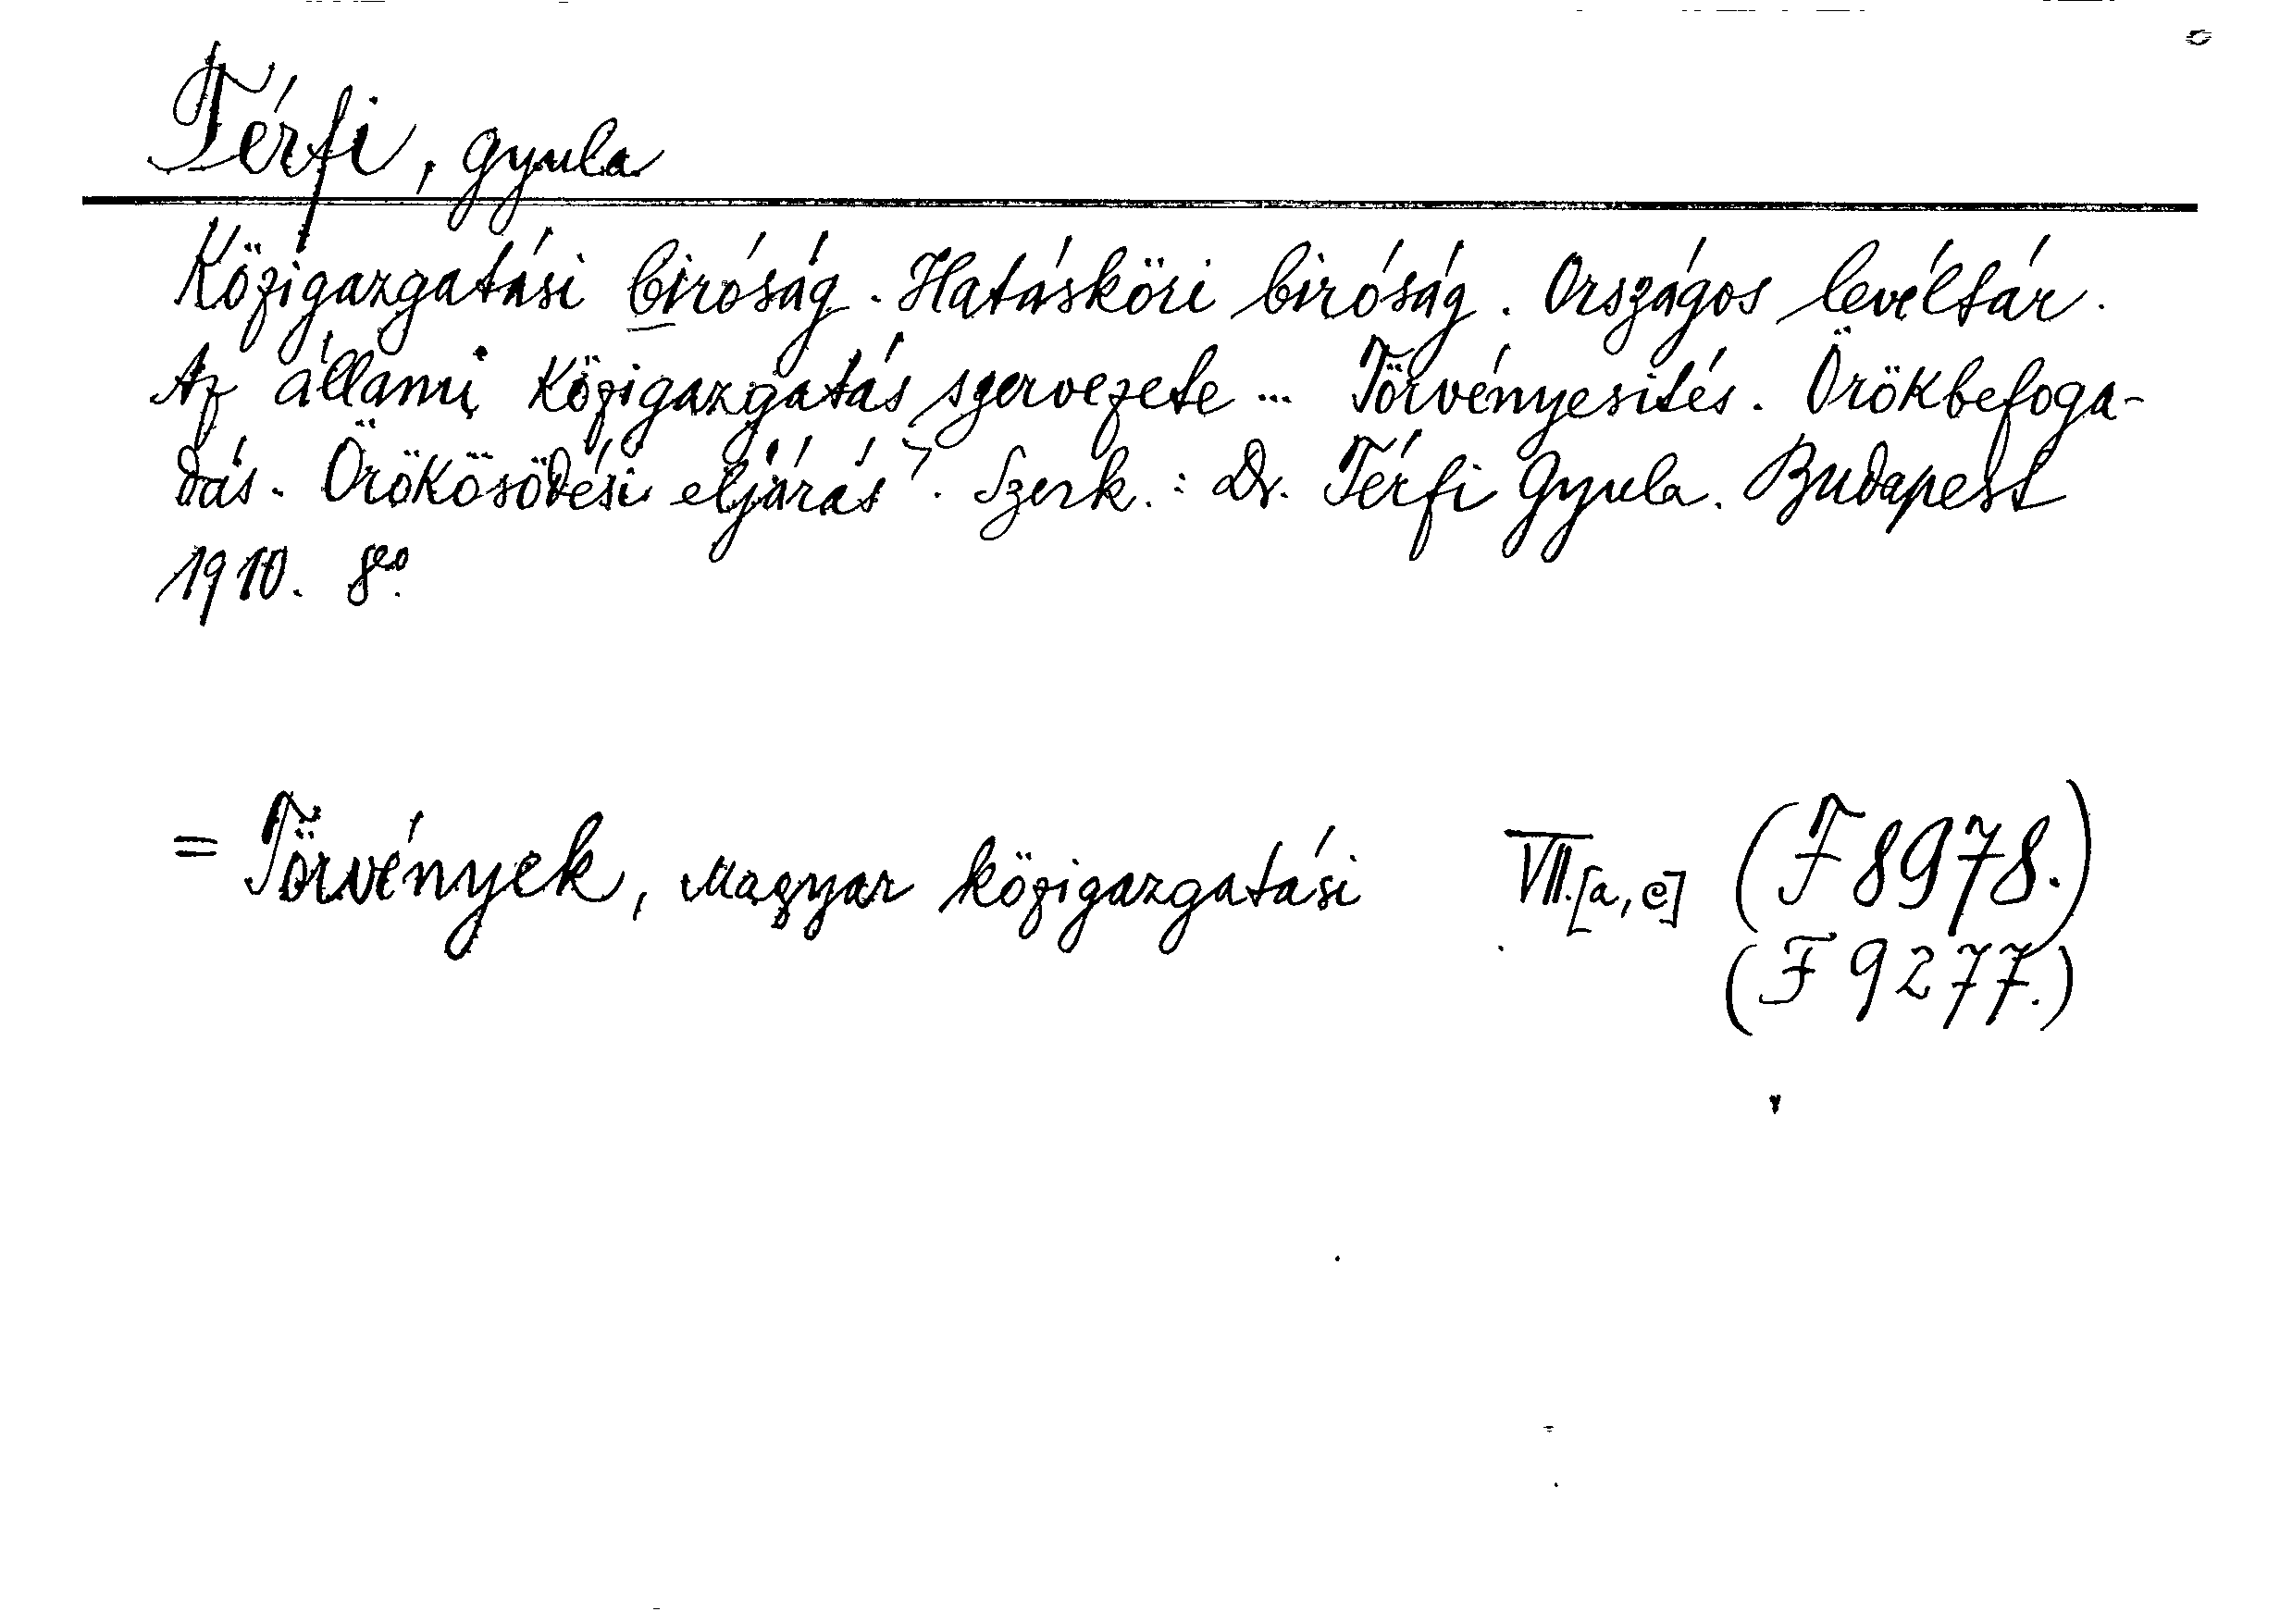 Térfi, Gyula
Közigazgatási biróság. Hatásköri biróság. Országos levéltár.
Az állami közigazgatás szervezete ... Törvényesités. Örökbefoga-
dás. Örökösödési eljárás. Szerk.: Dr. Térfi Gyula. Budapest
1910. 8eo.
= Törvények, Magyar közigazgatási VII.[a, e] (F 8978.)
(F 9277.)